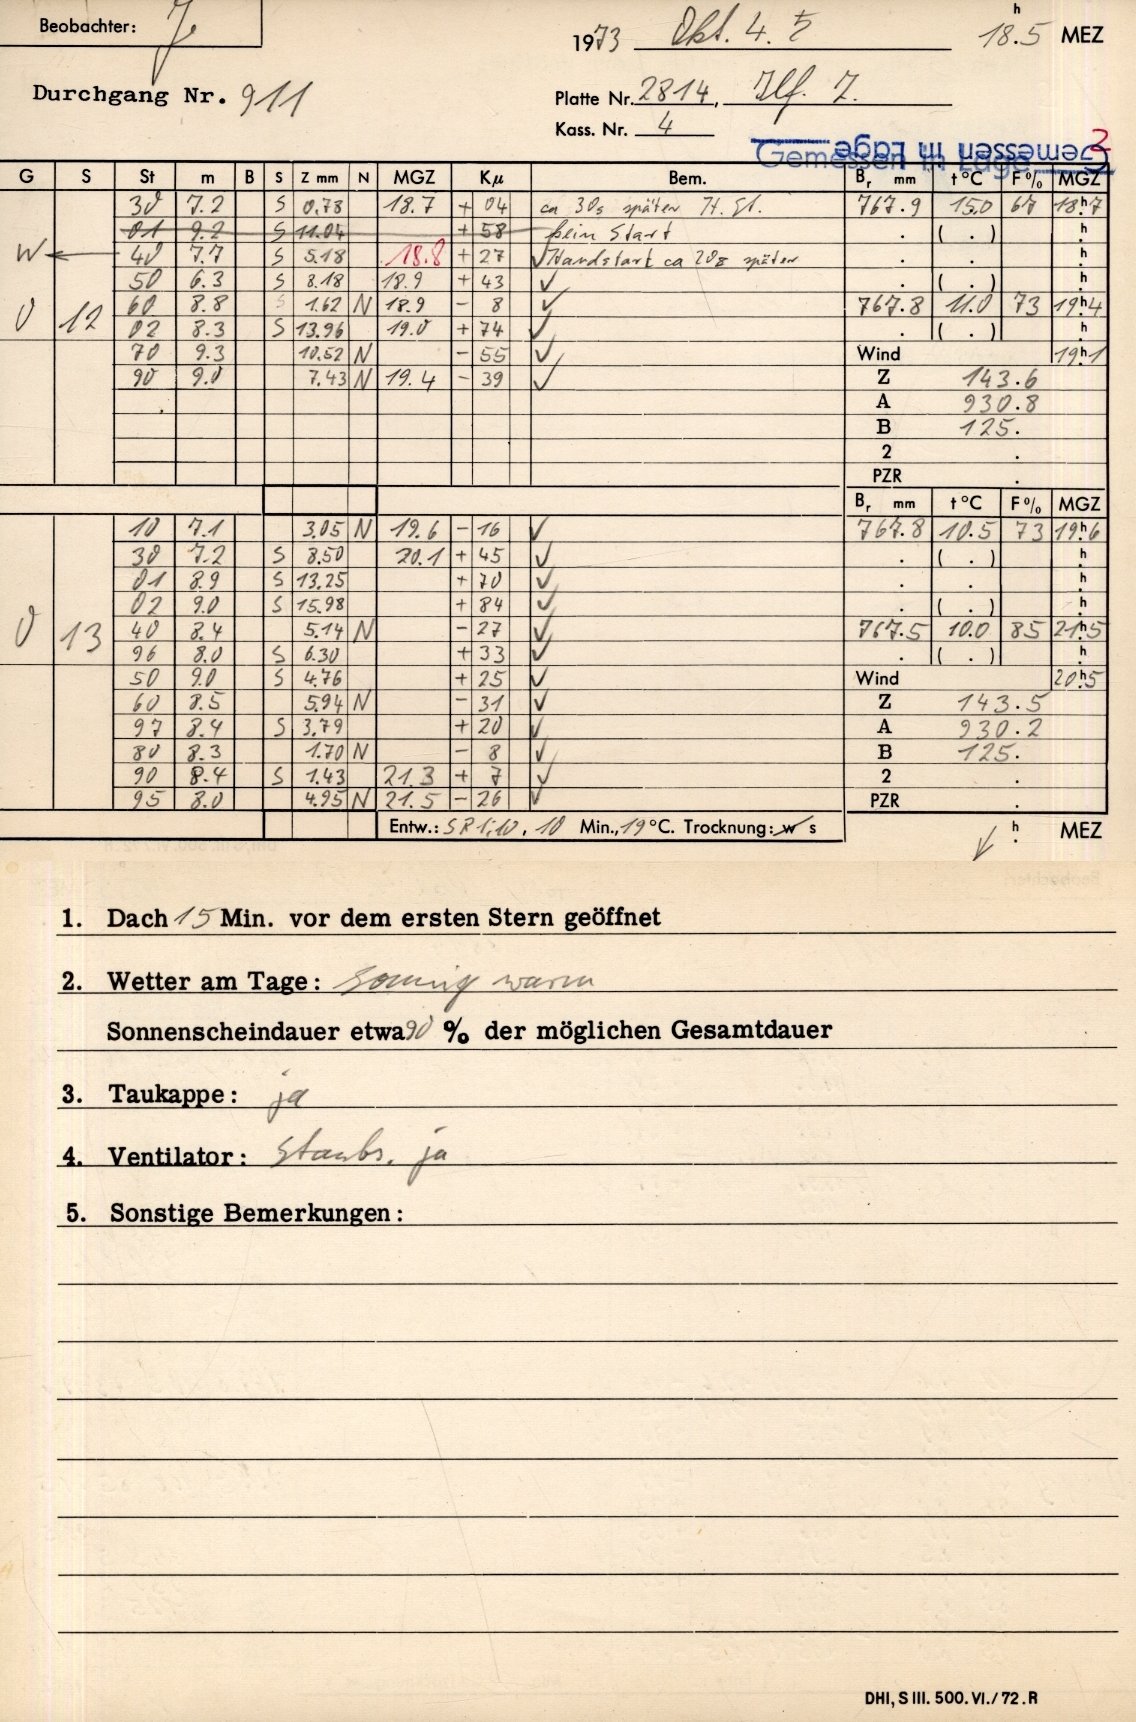 Beobachter: J
1973 Okt. 4. 5 18.5 h MEZ
Durchgang Nr. 911
Platte Nr. 2814, Ilf. Z.
Kass. Nr. 4
Gemessen in Lage
Gemessen in Lage 2
G S St m B S Z mm N MGZ Kμ Bem. Br mm t °C F % MGZ
30 7.2 S 0.78 18.7 + 04 ca 30s später H. St. 767.9 15.0 67 18h7
01 9.2 S 11.04 + 58 kein Start . ( . ) h
W 40 7.7 S 5.18 18.8 + 27 ✓ Handstart ca 20s später . . h
50 6.3 S 8.18 18.9 + 43 ✓ . ( . ) h
0 12 60 8.8 S 1.62 N 18.9 - 8 ✓ 767.8 11.0 73 19h4
02 8.3 S 13.96 19.0 + 74 ✓ . ( . ) h
70 9.3 10.52 N - 55 ✓ Wind 19h1
90 9.0 7.43 N 19.4 - 39 ✓ Z 143.6
A 930.8
B 125.
2 .
PZR .
Br mm t °C F % MGZ
10 7.1 3.05 N 19.6 - 16 ✓ 767.8 10.5 73 19h6
30 7.2 S 8.50 20.1 + 45 ✓ . ( . ) h
01 8.9 S 13.25 + 70 ✓ . . h
02 9.0 S 15.98 + 84 ✓ . ( . ) h
0 13 40 8.4 5.14 N - 27 ✓ 767.5 10.0 85 21h5
96 8.0 S 6.30 + 33 ✓ . ( . ) h
50 9.0 S 4.76 + 25 ✓ Wind 20h5
60 8.5 5.94 N - 31 ✓ Z 143.5
97 8.4 S 3.79 + 20 ✓ A 930.2
80 8.3 1.70 N - 8 ✓ B 125.
90 8.4 S 1.43 21.3 + 7 ✓ 2 .
95 8.0 4.95 N 21.5 - 26 ✓ PZR .
Entw.: 10 Min., 19 °C. Trocknung: w s h MEZ
1. Dach 15 Min. vor dem ersten Stern geöffnet
2. Wetter am Tage: sonnig warm
Sonnenscheindauer etwa 90 % der möglichen Gesamtdauer
3. Taukappe: ja
4. Ventilator: Staubs. ja
5. Sonstige Bemerkungen:
DHI, S III. 500. VI./72. R